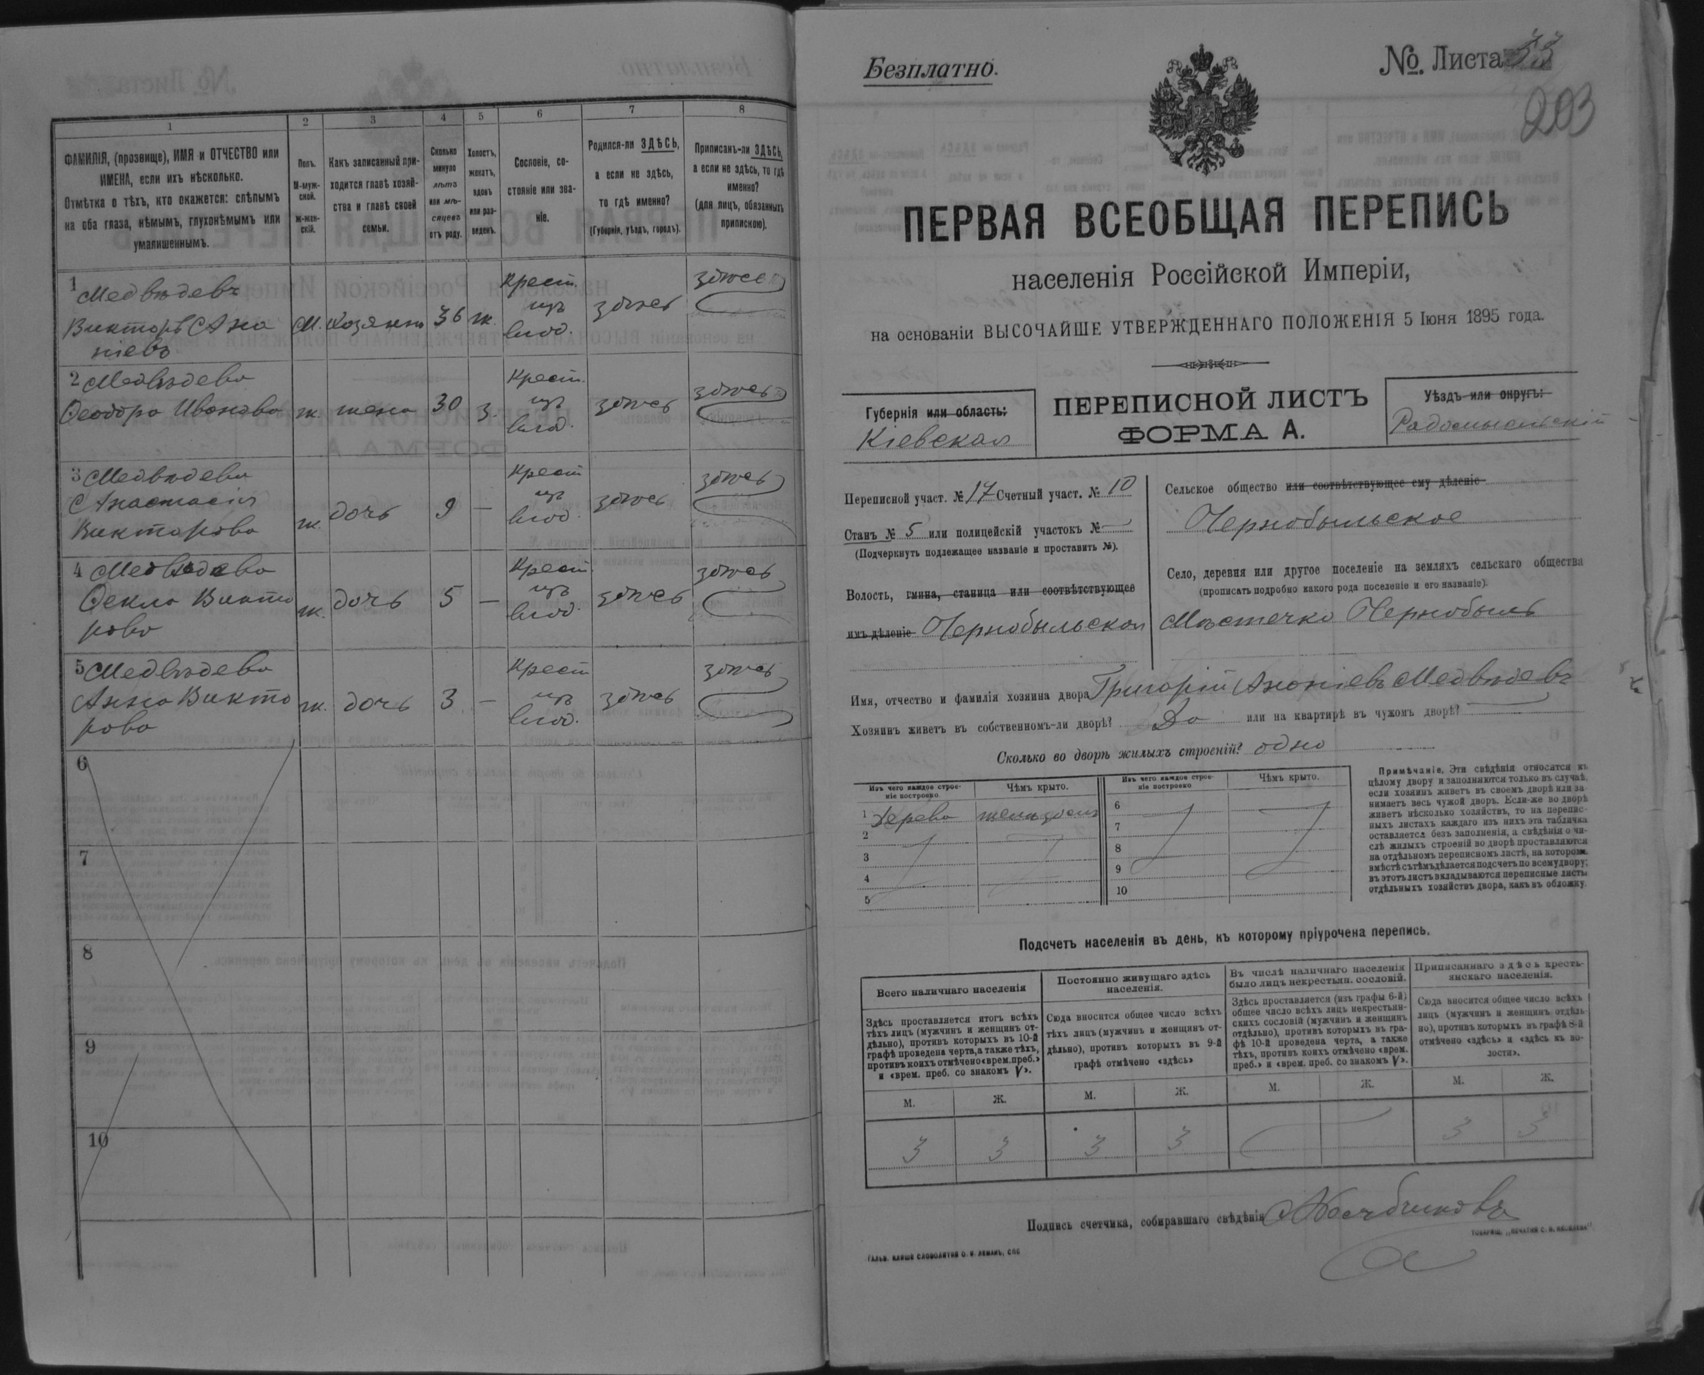 1
2
3
4
5
6
7
8
ФАМИЛІЯ, (прозвище), ИМЯ и ОТЧЕСТВО или
ИМЕНА, если ихъ нѣсколько.
Отмѣтка о тѣхъ, кто окажется: слѣпымъ
на оба глаза, нѣмымъ, глухонѣмымъ или
умалишеннымъ.
Полъ.
М-муж-
ской.
Ж-жен-
скій.
Какъ записанный при-
ходится главѣ хозяй-
ства и главѣ своей
семьи.
Сколько
минуло
лѣтъ
или мѣ-
сяцевъ
отъ роду.
Холостъ,
женатъ,
вдовъ
или раз-
веденъ.
Сословіе, со-
стояніе или зва-
ніе.
Родился-ли ЗДѢСЬ,
а если не здѣсь,
то гдѣ именно?
(Губернія, уѣздъ, городъ).
Приписанъ-ли ЗДѢСЬ,
а если не здѣсь, то гдѣ
именно?
(для лицъ, обязанныхъ
припискою).
1
Медвѣдевъ
Викторъ Ана
ніевъ
м. хозяинъ 36 ж.
Крест
изъ
влад.
здѣсь
здѣсь
2 Медвѣдева
Ѳеодора Иванова
ж. жена 30 з.
Крест.
изъ
влад.
здѣсь
здѣсь
3 Медвѣдева
Анастасія
Викторова
ж. дочь 9 —
Крест
изъ
влад.
здѣсь
здѣсь
4 Медвѣдева
Ѳекла Викто
рова
ж. дочь 5 —
Крест.
изъ
влад.
здѣсь
здѣсь
5 Медвѣдева
Анна Викто
рова
ж. дочь 3 —
Крест
изъ
влад.
здѣсь
здѣсь
6
7
8
9
10
Безплатно.
№ Листа 33
203
ПЕРВАЯ ВСЕОБЩАЯ ПЕРЕПИСЬ
населенія Россійской Имперіи,
на основаніи ВЫСОЧАЙШЕ УТВЕРЖДЕННАГО ПОЛОЖЕНІЯ 5 Іюня 1895 года.
Губернія или область:
Кіевская
ПЕРЕПИСНОЙ ЛИСТЪ
ФОРМА А.
Уѣздъ или округъ:
Радомысльскій
Переписной участ. № 17 Счетный участ. № 10
Станъ № 5 или полицейскій участокъ № —
(Подчеркнуть подлежащее названіе и проставить №).
Волость, гмина, станица или соотвѣтствующее
имъ дѣленіе Чернобыльская
Сельское общество или соотвѣтствующее ему дѣленіе
Чернобыльское
Село, деревня или другое поселеніе на земляхъ сельскаго общества
(прописать подробно какого рода поселеніе и его названіе).
Мѣстечко Чернобыль
Имя, отчество и фамилія хозяина двора Григорій Ананіевъ Медвѣдевъ
Хозяинъ живетъ въ собственномъ-ли дворѣ? Да или на квартирѣ въ чужомъ дворѣ? —
Сколько во дворѣ жилыхъ строеній? одно
Изъ чего каждое строе-
ніе построено
Чѣмъ крыто.
Изъ чего каждое строе-
ніе построено
Чѣмъ крыто.
1 Дерева желѣзомъ
2
3
4
5
6
7
8
9
10
Примѣчаніе. Эти свѣдѣнія относятся къ
цѣлому двору и заполняются только въ случаѣ,
если хозяинъ живетъ въ своемъ дворѣ или за-
нимаетъ весь чужой дворъ. Если-же во дворѣ
живетъ нѣсколько хозяйствъ, то на перепис-
ныхъ листахъ каждаго изъ нихъ эта табличка
оставляется безъ заполненія, а свѣдѣнія о чи-
слѣ жилыхъ строеній во дворѣ проставляются
на отдѣльномъ переписномъ листѣ, на которомъ
вмѣстѣ съ тѣмъ дѣлается подсчетъ по всему двору;
въ этотъ листъ вкладываются переписные листы
отдѣльныхъ хозяйствъ двора, какъ въ обложку.
Подсчетъ населенія въ день, къ которому пріурочена перепись.
Всего наличнаго населенія
Постоянно живущаго здѣсь
населенія.
Въ числѣ наличнаго населенія
было лицъ некрестьян. сословій.
Приписаннаго здѣсь кресть-
янскаго населенія.
Здѣсь проставляется итогъ всѣхъ
тѣхъ лицъ (мужчинъ и женщинъ от-
дѣльно), противъ которыхъ въ 10-й
графѣ проведена черта, а также тѣхъ,
противъ коихъ отмѣчено «врем. преб.»
и «врем. преб. со знакомъ V».
Сюда вносится общее число всѣхъ
тѣхъ лицъ (мужчинъ и женщинъ от-
дѣльно), противъ которыхъ въ 9-й
графѣ отмѣчено «здѣсь»
Здѣсь проставляется (изъ графы 6-й)
общее число всѣхъ лицъ некрестьян-
скихъ сословій (мужчинъ и женщинъ
отдѣльно), противъ которыхъ въ гра-
фѣ 10-й проведена черта, а также
тѣхъ, противъ коихъ отмѣчено «врем.
преб.» и «врем. преб. со знакомъ V».
Сюда вносится общее число всѣхъ
лицъ (мужчинъ и женщинъ отдѣль-
но), противъ которыхъ въ графѣ 8-й
отмѣчено «здѣсь» и «здѣсь въ во-
лости».
М. Ж. М. Ж. М. Ж. М. Ж.
3 3 3 3 3 3
Подпись счетчика, собиравшаго свѣдѣнія